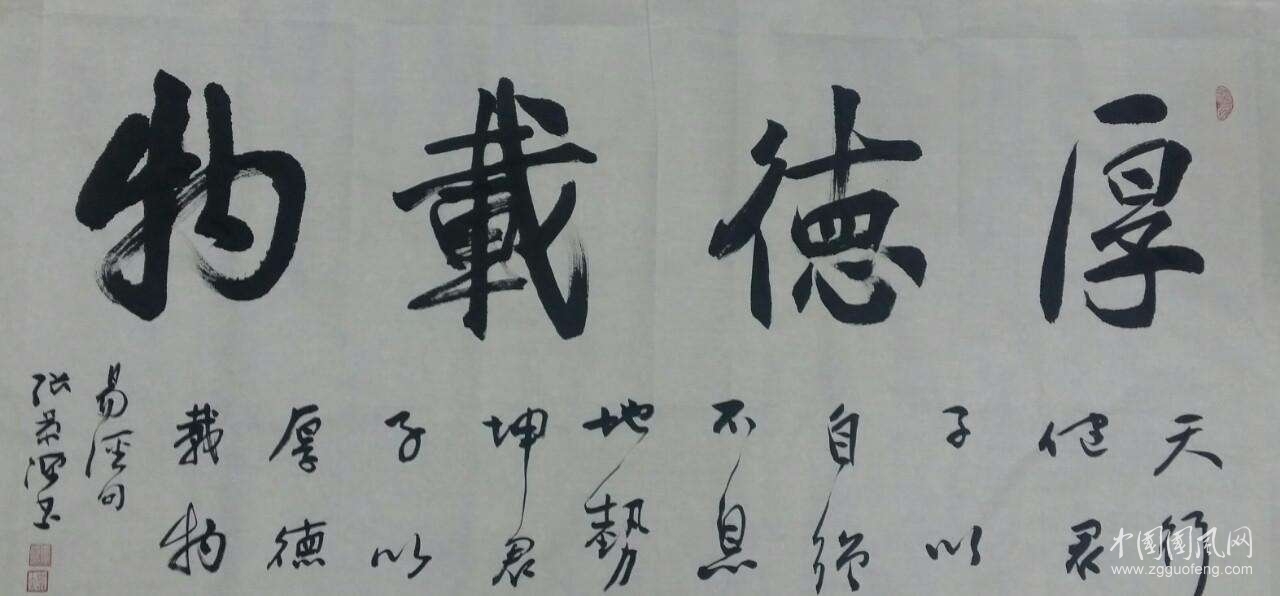 厚德载物
天行
健君
子以
自强
不息
地势
坤君
子以
厚德
载物
易经句
中国国风网
www.zgguofeng.com